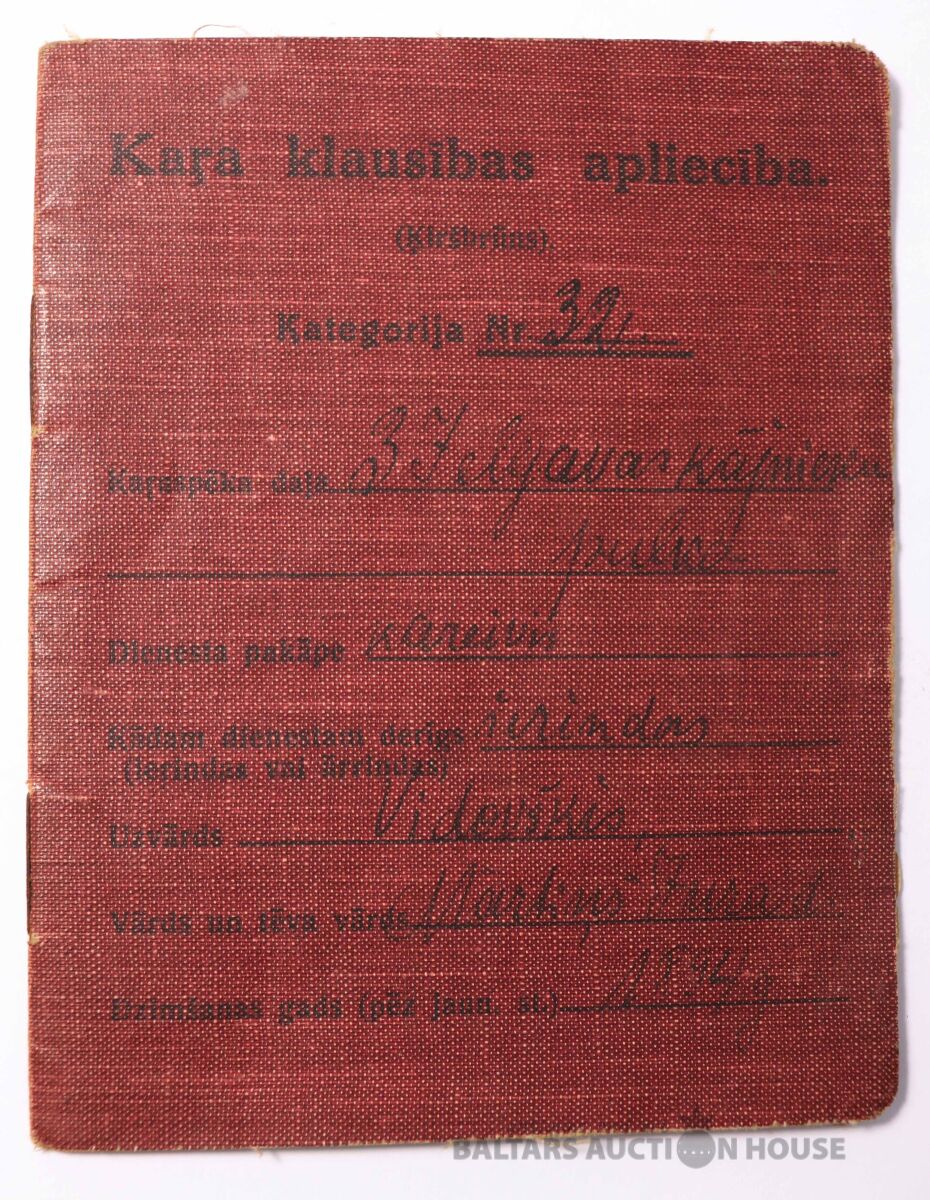 Kaŗa klausības apliecība.
(Ķiršbrūns).
Kategorija Nr. 32.
Kaŗaspēka daļa 3 Jelgavas kājnieku
pulkā
Dienesta pakāpe kareivis
Kādam dienestam derīgs ierindas
(ierindas vai ārrindas)
Uzvārds Vidovskis,
Vārds un tēva vārds Martiņš Jura d.
Dzimšanas gads (pēc jaun. st.)
BALTARS AUCTION HOUSE